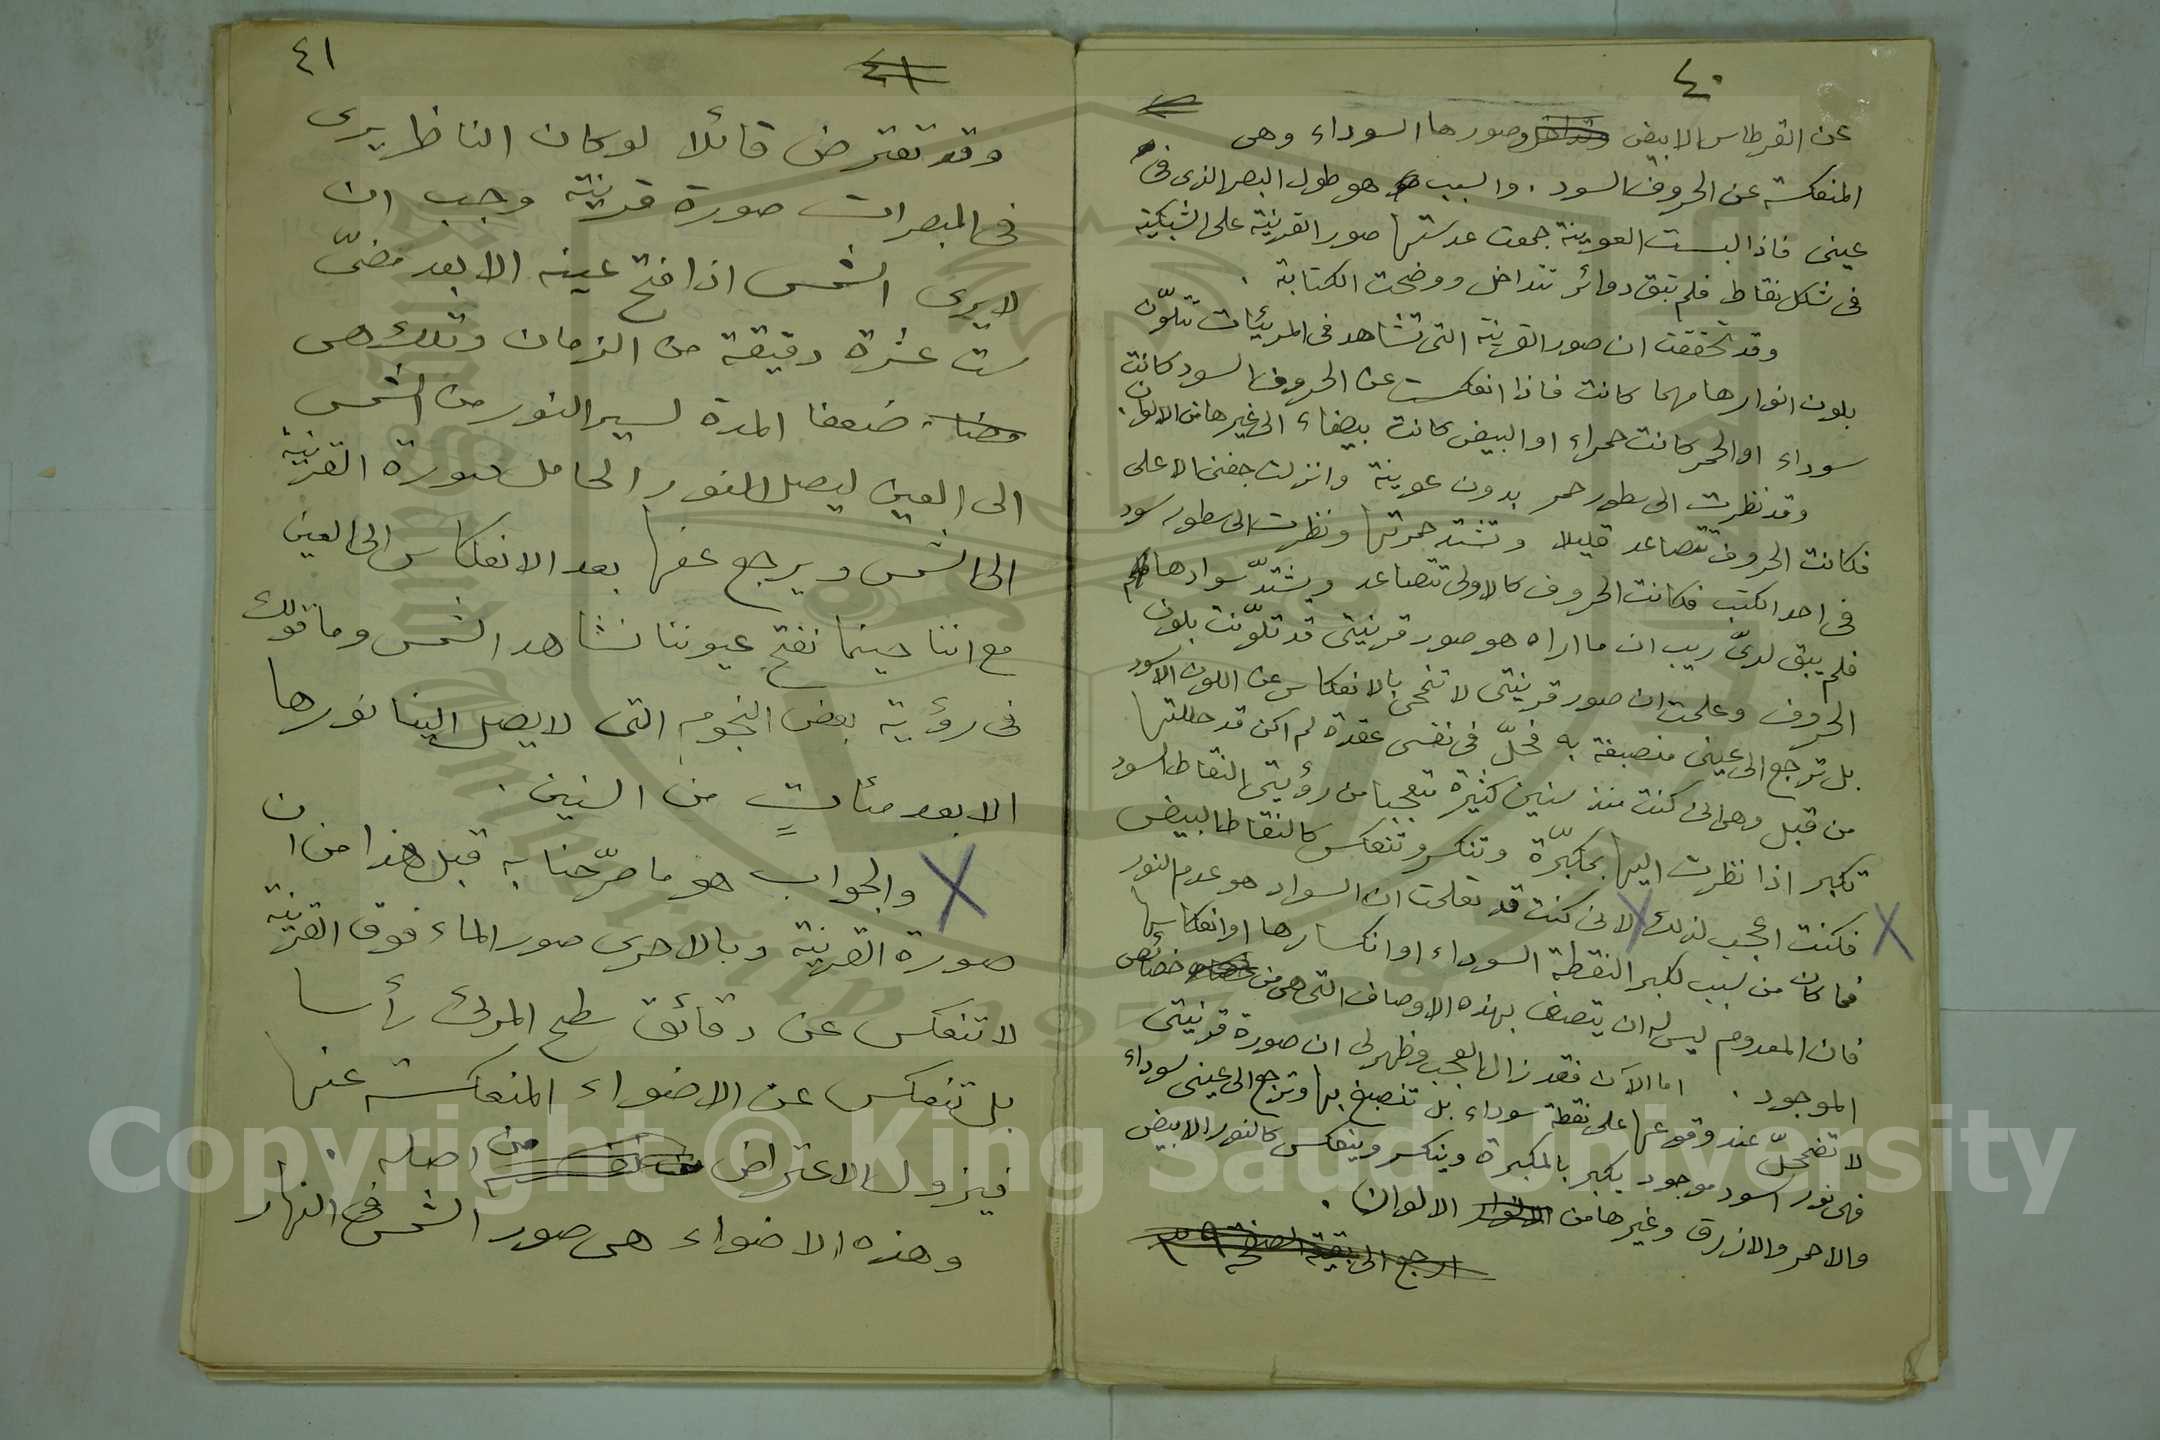 ٤٠
عن القرطاس الابيض وصورها السوداء وهى
المنعكسة عن الحروف السود . والسبب هو طول البصر الذى فى
عينى فاذا لبست العوينة جمعت عدستها صور القرنية على الشبكية
فى شكل نقاط فلم تبق دوائر تتداخل ووضحت الكتابة .
وقد تحققت ان صور القرنية التى تشاهد فى المرئيات تتلوّن
بلون انوارها مهما كانت فاذا انعكست عن الحروف السود كانت
سوداء او الحمر كانت حمراء او البيض كانت بيضاء الى غيرها من الالوان .
وقد نظرت الى سطور حمر بدون عوينة وانزلت جفنى الاعلى
فكانت الحروف تتصاعد قليلا وتشتد حمرتها ونظرت الى سطور سود
فى احد الكتب فكانت الحروف كالاولى تتصاعد ويشتدّ سوادها
فلم يبق لدىّ ريب ان ما اراه هو صور قرنيتى قد تلوّنت بلون
الحروف وعلمت ان صور قرنيتى لا تنمحى بالانعكاس عن اللون الاسود
بل ترجع الى عينى منصبغة به فحلّ فى نفسى عقدة لم اكن قد حللتها
من قبل وهى انى كنت منذ سنين كثيرة متعجبا من رؤيتى النقاط السود
تكبر اذا نظرت اليها بمكبّرة وتنكسر وتنعكس كالنقاط البيض
فكنت اعجب لذلك لانى كنت قد تعلمت ان السواد هو عدم النور
فما كان من سبب لكبر النقطة السوداء او انكسارها او انعكاسها
فان المعدوم ليس له ان يتصف بهذه الاوصاف التى هى من خصائص
الموجود . اما الآن فقد زال العجب وظهر لى ان صورة قرنيتى
لا تضمحلّ عند وقوعها على نقطة سوداء بل تنصبغ بها وترجع الى عينى سوداء
فهى نور اسود موجود يكبر بالمكبرة وينكسر وينعكس كالنور الابيض
والاحمر والازرق وغيرها من الالوان .
ارجع الى بقية الصفحة ٣٩
٤١
٤١
وقد تفترض قائلا لو كان الناظر يرى
فى المبصرات صورة قرنيته وجب ان
لا يرى الشمس اذا فتح عينه الا بعد مضىّ
ست عشرة دقيقة من الزمان وتلك هى
ضعفا المدة لسير النور من الشمس
الى العين ليصل النور الحامل لصورة القرنية
الى الشمس ويرجع عنها بعد الانعكاس الى العين
مع اننا حينما نفتح عيوننا نشاهد الشمس وما قولك
فى رؤية بعض النجوم التى لا يصل الينا نورها
الا بعد مئات من السنين .
والجواب هو ما صرّحنا به قبل هذا من ان
صورة القرنية وبالاحرى صور الماء فوق القرنية
لا تنعكس عن دقائق سطح المرئى رأسا
بل تنعكس عن الاضواء المنعكسة عنها
فيزول الاعتراض من اصله .
وهذه الاضواء هى صور الشمس فى النهار
Copyright © King Saud University